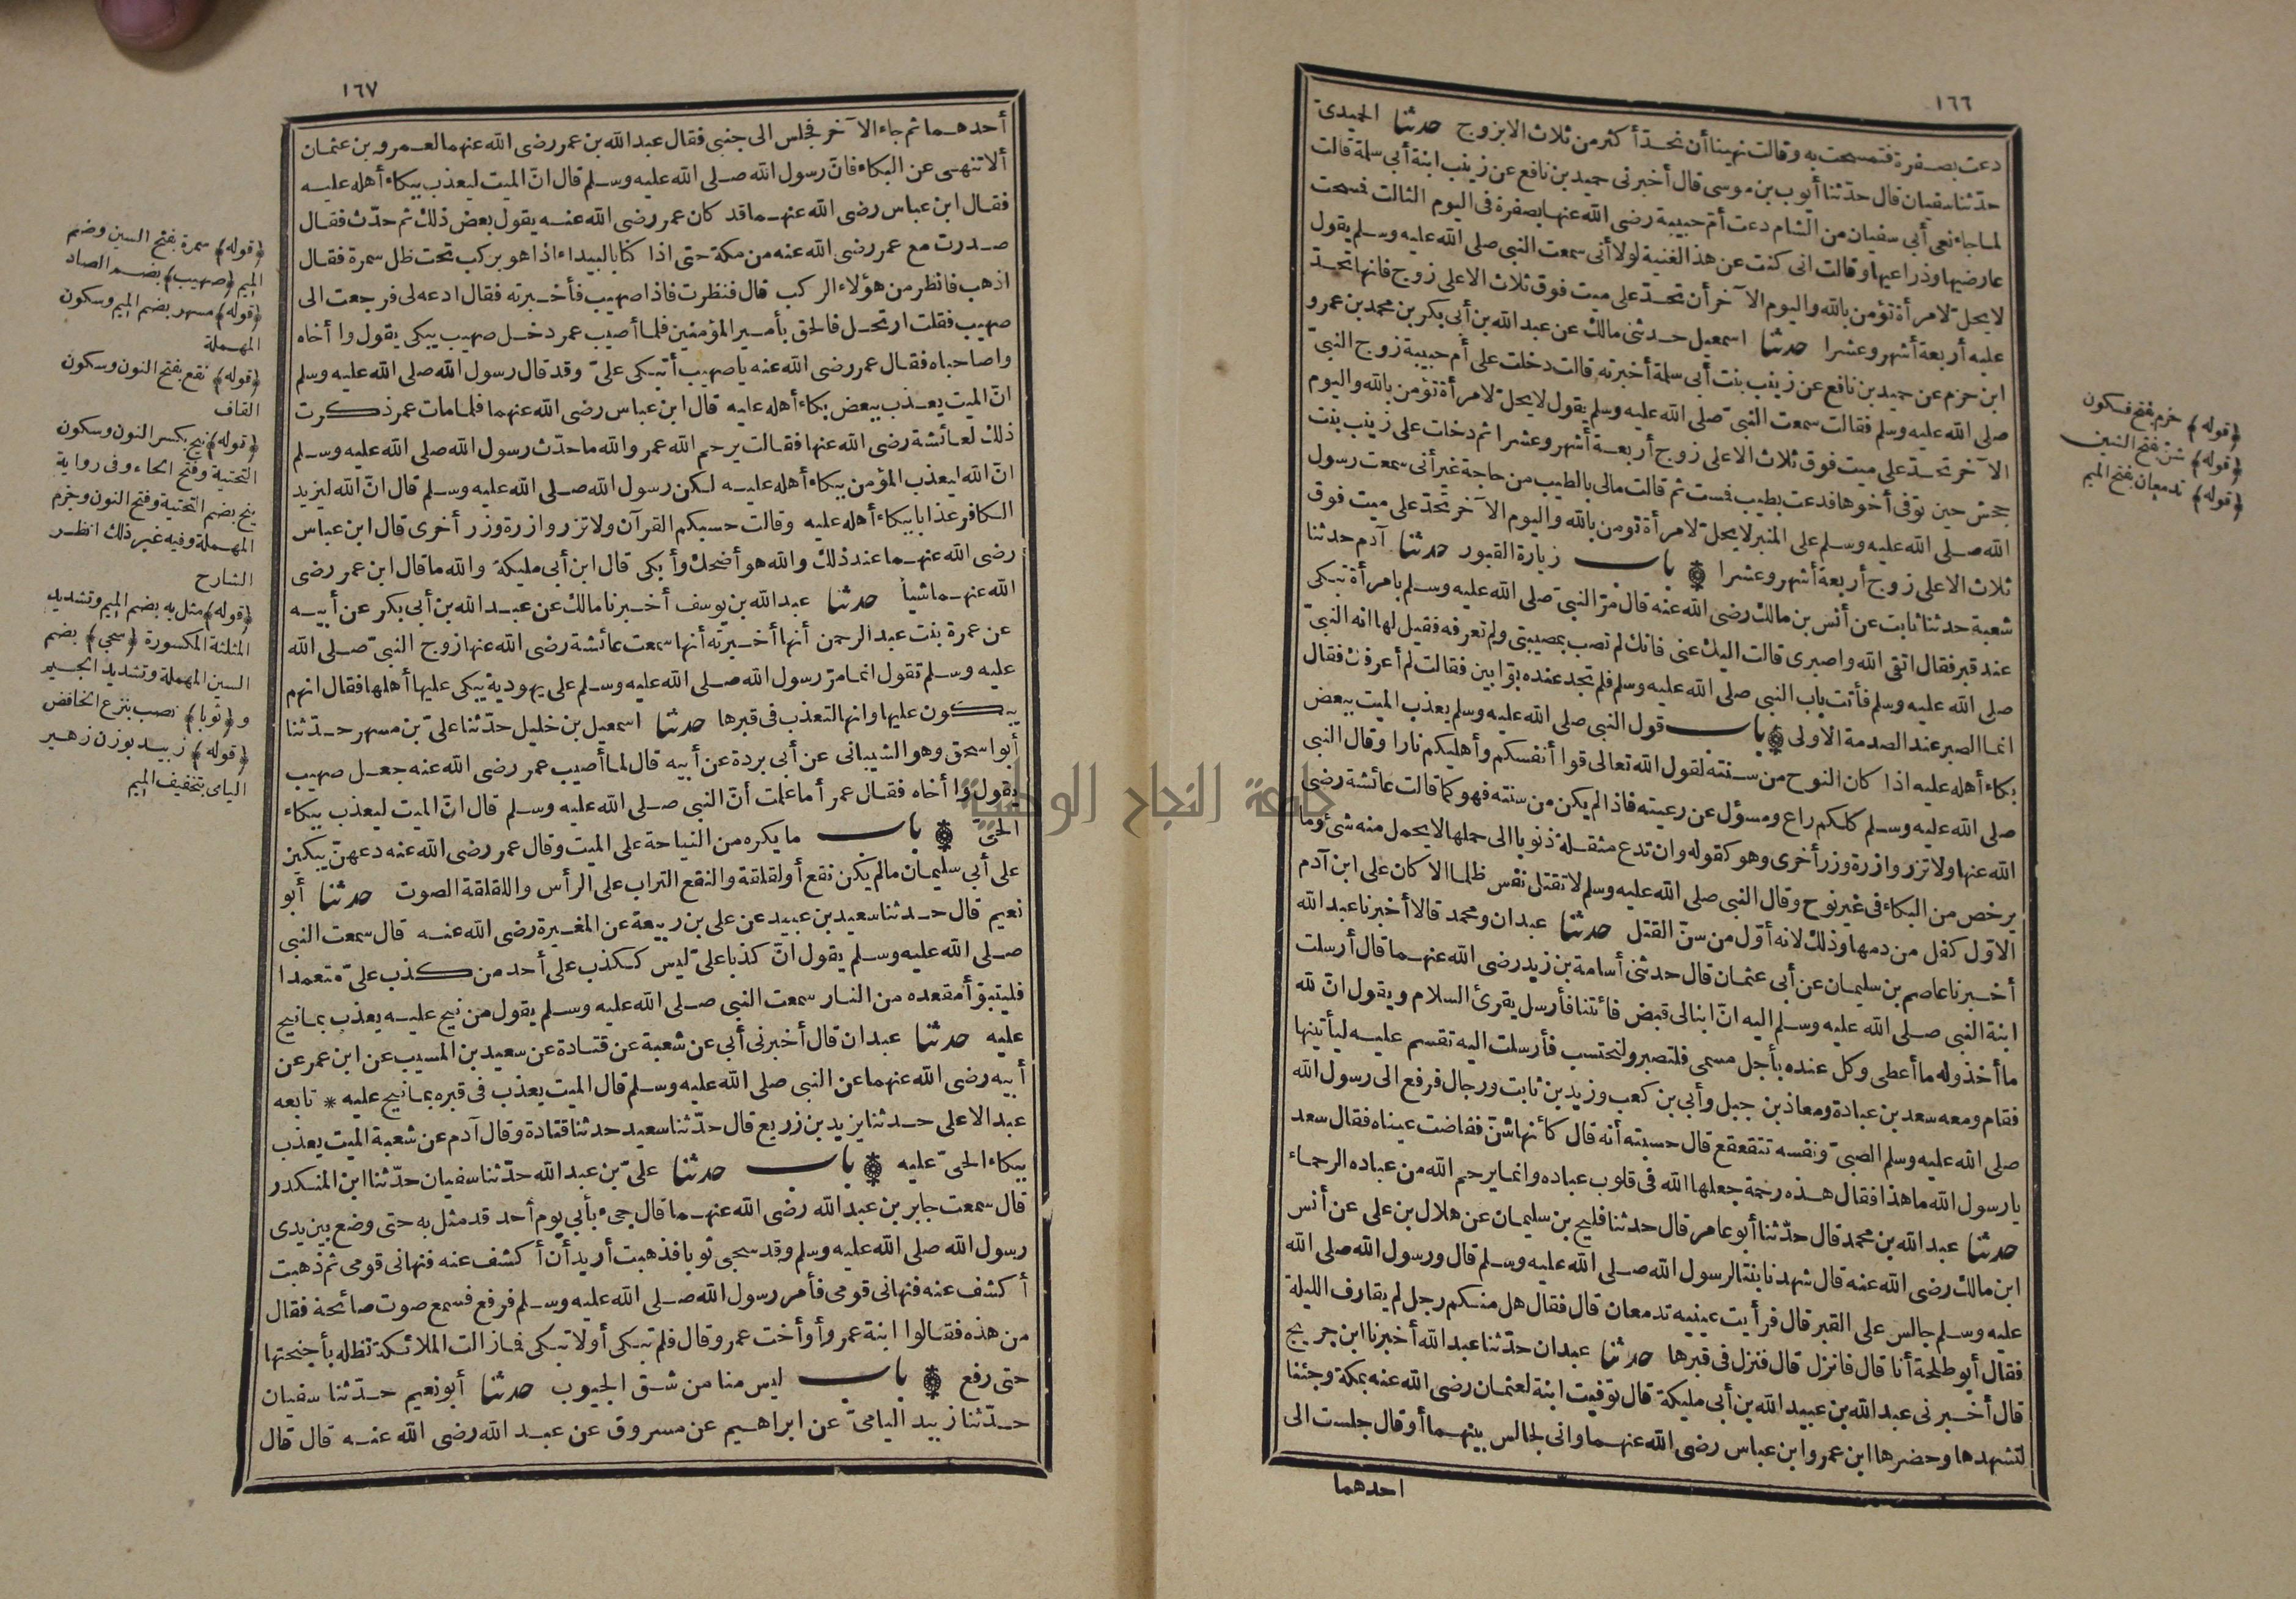 ١٦٦
دعت بصفرة فتمسحت به وقالت نهينا أن نحدّ أكثر من ثلاث الا بزوج حدثنا الحميدىّ
حدّثنا سفيان قال حدّثنا أيوب بن موسى قال أخبرنى حميد بن نافع عن زينب ابنة أبى سلمة قالت
لما جاء نعى أبى سفيان من الشام دعت أم حبيبة رضى الله عنها بصفرة فى اليوم الثالث فمسحت
عارضيها وذراعيها وقالت انى كنت عن هذا لغنية لولا أنى سمعت النبى صلى الله عليه وسلم يقول
لا يحلّ لامرأة تؤمن بالله واليوم الآخر أن تحدّ على ميت فوق ثلاث الا على زوج فانها تحدّ
عليه أربعة أشهر وعشرا حدثنا اسمعيل حدثنى مالك عن عبد الله بن أبى بكر بن محمد بن عمرو
ابن حزم عن حميد بن نافع عن زينب بنت أبى سلمة أخبرته قالت دخلت على أم حبيبة زوج النبىّ
صلى الله عليه وسلم فقالت سمعت النبىّ صلى الله عليه وسلم يقول لا يحلّ لامرأة تؤمن بالله واليوم
الآخر تحدّ على ميت فوق ثلاث الا على زوج أربعة أشهر وعشرا ثم دخلت على زينب بنت
جحش حين توفى أخوها فدعت بطيب فمست ثم قالت مالى بالطيب من حاجة غير أنى سمعت رسول
الله صلى الله عليه وسلم على المنبر لا يحلّ لامرأة تؤمن بالله واليوم الآخر تحدّ على ميت فوق
ثلاث الا على زوج أربعة أشهر وعشرا باب زيارة القبور حدثنا آدم حدثنا
شعبة حدثنا ثابت عن أنس بن مالك رضى الله عنه قال مرّ النبىّ صلى الله عليه وسلم بامرأة تبكى
عند قبر فقال اتقى الله واصبرى قالت اليك عنى فانك لم تصب بمصيبتى ولم تعرفه فقيل لها انه النبىّ
صلى الله عليه وسلم فأتت باب النبى صلى الله عليه وسلم فلم تجد عنده بوّابين فقالت لم أعرفك فقال
انما الصبر عند الصدمة الاولى باب قول النبى صلى الله عليه وسلم يعذب الميت ببعض
بكاء أهله عليه اذا كان النوح من سنته لقول الله تعالى قوا أنفسكم وأهليكم نارا وقال النبى
صلى الله عليه وسلم كلكم راع ومسؤل عن رعيته فاذا لم يكن من سنته فهو كما قالت عائشة رضى
الله عنها ولا تزر وازرة وزر أخرى وهو كقوله وان تدع مثقلة ذنوبا الى حملها لا يحمل منه شئ وما
يرخص من البكاء فى غير نوح وقال النبى صلى الله عليه وسلم لا تقتل نفس ظلما الا كان على ابن آدم
الاوّل كفل من دمها وذلك لانه أوّل من سنّ القتل حدثنا عبدان ومحمد قالا أخبرنا عبد الله
أخبرنا عاصم بن سليمان عن أبى عثمان قال حدثنى أسامة بن زيد رضى الله عنهما قال أرسلت
ابنة النبى صلى الله عليه وسلم اليه انّ ابنا لى قبض فائتنا فأرسل يقرئ السلام ويقول انّ لله
ما أخذ وله ما أعطى وكل عنده بأجل مسمى فلتصبر ولتحتسب فأرسلت اليه تقسم عليه ليأتينها
فقام ومعه سعد بن عبادة ومعاذ بن جبل وأبى بن كعب وزيد بن ثابت ورجال فرفع الى رسول الله
صلى الله عليه وسلم الصبىّ ونفسه تتقعقع قال حسبته أنه قال كأنها شنّ ففاضت عيناه فقال سعد
يا رسول الله ما هذا فقال هذه رحمة جعلها الله فى قلوب عباده وانما يرحم الله من عباده الرحماء
حدثنا عبد الله بن محمد قال حدّثنا أبو عامر قال حدثنا فليح بن سليمان عن هلال بن على عن أنس
ابن مالك رضى الله عنه قال شهدنا بنتا لرسول الله صلى الله عليه وسلم قال ورسول الله صلى الله
عليه وسلم جالس على القبر قال فرأيت عينيه تدمعان قال فقال هل منكم رجل لم يقارف الليلة
فقال أبو طلحة أنا قال فانزل قال فنزل فى قبرها حدثنا عبدان حدّثنا عبد الله أخبرنا ابن جريج
قال أخبرنى عبد الله بن عبيد الله بن أبى مليكة قال توفيت ابنة لعثمان رضى الله عنه بمكة وجئنا
لنشهدها وحضرها ابن عمر وابن عباس رضى الله عنهما وانى لجالس بينهما أو قال جلست الى
احدهما
﴿قوله﴾ حزم بفتح فسكون
﴿قوله﴾ شنّ بفتح الشين
﴿قوله﴾ تدمعان بفتح الميم
١٦٧
أحدهما ثم جاء الآخر فجلس الى جنبى فقال عبد الله بن عمر رضى الله عنهما لعمرو بن عثمان
ألا تنهى عن البكاء فانّ رسول الله صلى الله عليه وسلم قال انّ الميت ليعذب ببكاء أهله عليه
فقال ابن عباس رضى الله عنهما قد كان عمر رضى الله عنه يقول بعض ذلك ثم حدّث فقال
صدرت مع عمر رضى الله عنه من مكة حتى اذا كنا بالبيداء اذا هو بركب تحت ظل سمرة فقال
اذهب فانظر من هؤلاء الركب قال فنظرت فاذا صهيب فأخبرته فقال ادعه لى فرجعت الى
صهيب فقلت ارتحل فالحق بأمير المؤمنين فلما أصيب عمر دخل صهيب يبكى يقول وا أخاه
واصاحباه فقال عمر رضى الله عنه يا صهيب أتبكى علىّ وقد قال رسول الله صلى الله عليه وسلم
انّ الميت يعذب ببعض بكاء أهله عليه قال ابن عباس رضى الله عنهما فلما مات عمر ذكرت
ذلك لعائشة رضى الله عنها فقالت يرحم الله عمر والله ما حدّث رسول الله صلى الله عليه وسلم
انّ الله ليعذب المؤمن ببكاء أهله عليه لكن رسول الله صلى الله عليه وسلم قال انّ الله ليزيد
الكافر عذابا ببكاء أهله عليه وقالت حسبكم القرآن ولا تزر وازرة وزر أخرى قال ابن عباس
رضى الله عنهما عند ذلك والله هو أضحك وأبكى قال ابن أبى مليكة والله ما قال ابن عمر رضى
الله عنهما شيأ حدثنا عبد الله بن يوسف أخبرنا مالك عن عبد الله بن أبى بكر عن أبيه
عن عمرة بنت عبد الرحمن أنها أخبرته أنها سمعت عائشة رضى الله عنها زوج النبىّ صلى الله
عليه وسلم تقول انما مرّ رسول الله صلى الله عليه وسلم على يهودية يبكى عليها أهلها فقال انهم
يبكون عليها وانها لتعذب فى قبرها حدثنا اسمعيل بن خليل حدّثنا علىّ بن مسهر حدّثنا
أبو اسحق وهو الشيبانى عن أبى بردة عن أبيه قال لما أصيب عمر رضى الله عنه جعل صهيب
يقول وا أخاه فقال عمر أما علمت أنّ النبى صلى الله عليه وسلم قال انّ الميت ليعذب ببكاء
الحىّ باب ما يكره من النياحة على الميت وقال عمر رضى الله عنه دعهنّ يبكين
على أبى سليمان ما لم يكن نقع أو لقلقة والنقع التراب على الرأس واللقلقة الصوت حدثنا أبو
نعيم قال حدثنا سعيد بن عبيد عن على بن ربيعة عن المغيرة رضى الله عنه قال سمعت النبى
صلى الله عليه وسلم يقول انّ كذبا علىّ ليس ككذب على أحد من كذب علىّ متعمدا
فليتبوّأ مقعده من النار سمعت النبى صلى الله عليه وسلم يقول من نيح عليه يعذب بما نيح
عليه حدثنا عبدان قال أخبرنى أبى عن شعبة عن قتادة عن سعيد بن المسيب عن ابن عمر عن
أبيه رضى الله عنهما عن النبى صلى الله عليه وسلم قال الميت يعذب فى قبره بما نيح عليه * تابعه
عبد الاعلى حدثنا يزيد بن زريع قال حدّثنا سعيد حدثنا قتادة وقال آدم عن شعبة الميت يعذب
ببكاء الحىّ عليه باب حدثنا علىّ بن عبد الله حدّثنا سفيان حدّثنا ابن المنكدر
قال سمعت جابر بن عبد الله رضى الله عنهما قال جىء بأبى يوم أحد قد مثل به حتى وضع بين يدى
رسول الله صلى الله عليه وسلم وقد سجى ثوبا فذهبت أريد أن أكشف عنه فنهانى قومى ثم ذهبت
أكشف عنه فنهانى قومى فأمر رسول الله صلى الله عليه وسلم فرفع فسمع صوت صائحة فقال
من هذه فقالوا ابنة عمرو أو أخت عمرو قال فلم تبكى أو لا تبكى فما زالت الملائكة تظله بأجنحتها
حتى رفع باب ليس منا من شق الجيوب حدثنا أبو نعيم حدّثنا سفيان
حدّثنا زبيد اليامىّ عن ابراهيم عن مسروق عن عبد الله رضى الله عنه قال قال
﴿قوله﴾ سمرة بفتح السين وضم
الميم ﴿صهيب﴾ بضم الصاد
﴿قوله﴾ مسهر بضم الميم وسكون
المهملة
﴿قوله﴾ نقع بفتح النون وسكون
القاف
﴿قوله﴾ نيح بكسر النون وسكون
التحتية وفتح الحاء وفى رواية
ينح بضم التحتية وفتح النون وجزم
المهملة وفيه غير ذلك انظر
الشارح
﴿قوله﴾ مثل به بضم الميم وتشديد
المثلثة المكسورة ﴿سجى﴾ بضم
السين المهملة وتشديد الجيم
و﴿ثوبا﴾ نصب بنزع الخافض
﴿قوله﴾ زبيد بوزن زهير
اليامى بتخفيف الميم
جامعة النجاح الوطنية